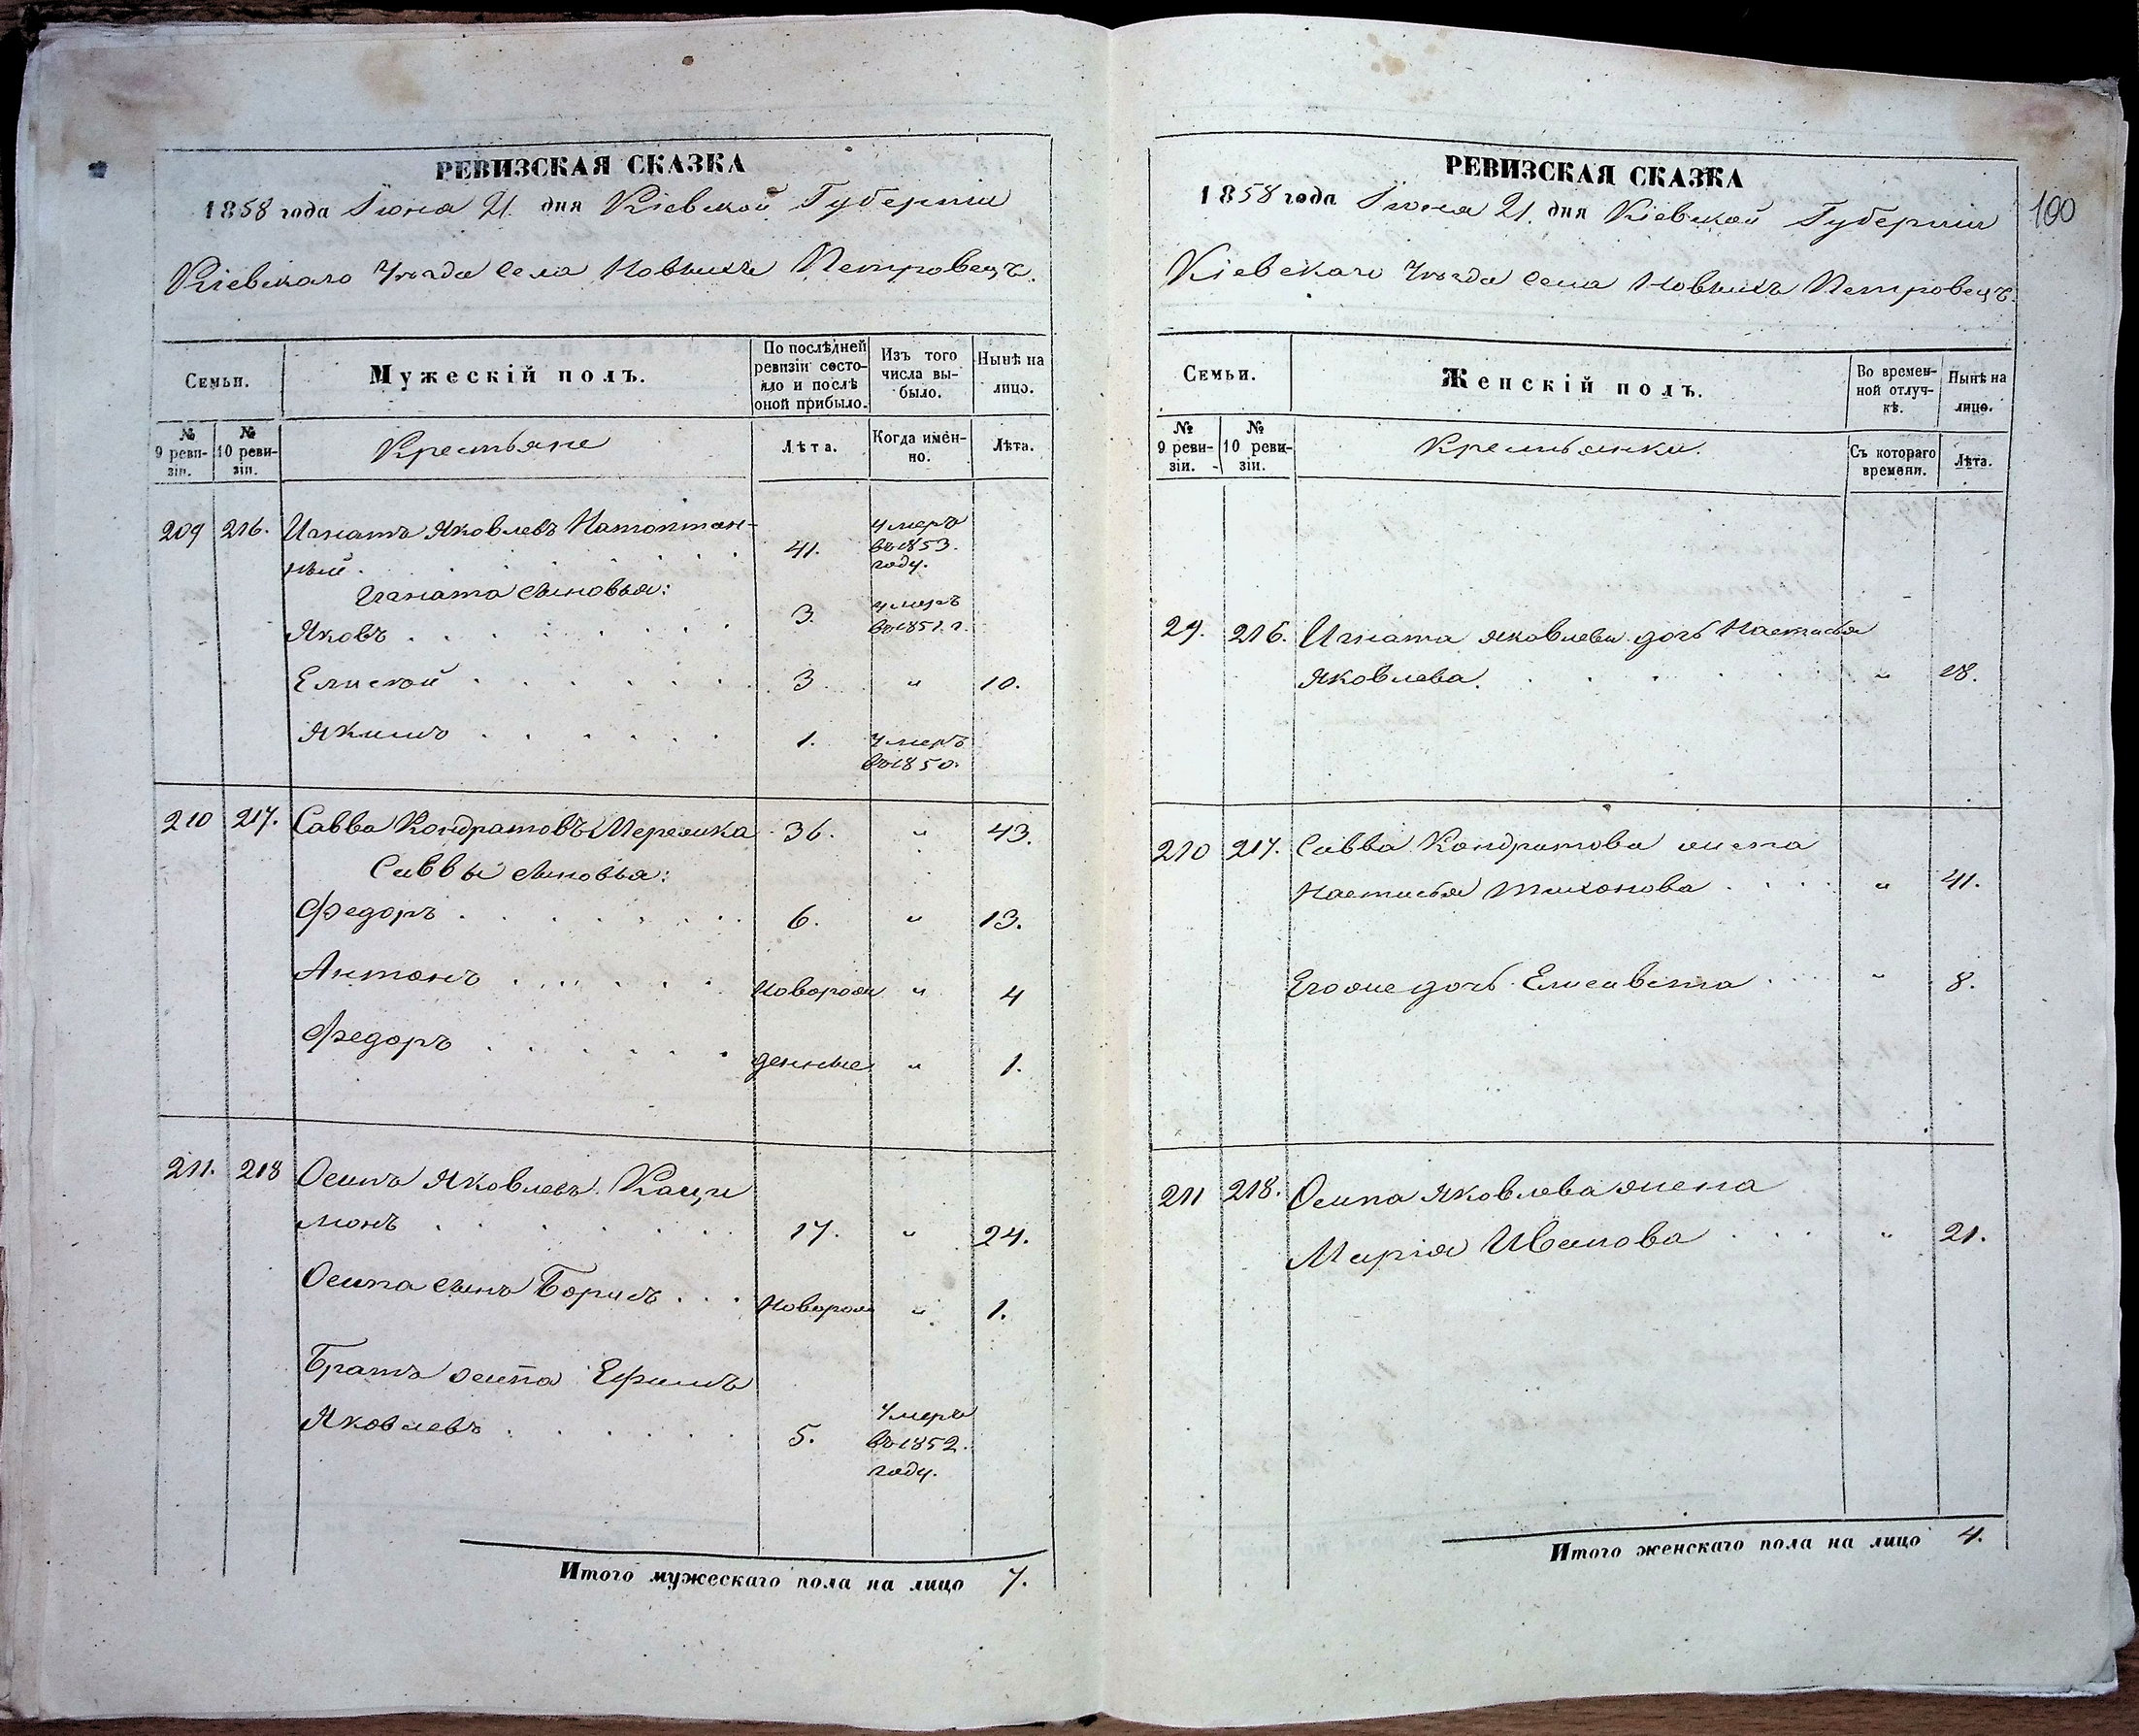 РЕВИЗСКАЯ СКАЗКА
1858 года Іюня 21. дня Кіевской Губерніи
Кіевскаго Уѣзда Села Новыхъ Петровецъ.
Семьи.
Мужескій полъ.
По послѣдней ревизіи состояло и послѣ оной прибыло.
Изъ того числа выбыло.
Нынѣ на лицо.
№ 9 ревизіи.
№ 10 ревизіи.
Крестьяне
Лѣта.
Когда именно.
Лѣта.
209 216. Игнатъ Яковлевъ Натоптан-
ный . 41. Умеръ въ 1853. году.
Игната сыновья:
Яковъ . 3. умеръ въ 1851. г.
Елисей . 3 " 10.
Якимъ . 1. Умеръ въ 1850.
210 217. Савва Кондратовъ 36. " 43.
Саввы сыновья:
Федоръ . 6. " 13.
Антонъ . Новорож " 4
Федоръ . денные " 1.
211. 218 Осипъ Яковлевъ Каци
монъ . 17. " 24.
Осипа сынъ Борисъ . Новорож " 1.
Братъ Осипа Ефимъ
Яковлевъ . 5. Умеръ въ 1852. году.
Итого мужескаго пола на лицо 7.
100
РЕВИЗСКАЯ СКАЗКА
1858 года Іюня 21. дня Кіевской Губерніи
Кіевскаго Уѣзда Села Новыхъ Петровецъ.
Семьи.
Женскій полъ.
Во временной отлучкѣ.
Нынѣ на лицо.
№ 9 ревизіи.
№ 10 ревизіи.
Крестьянки.
Съ котораго времени.
Лѣта.
29. 216. Игната Яковлева дочь Настасья
Яковлева. " 18.
210 217. Савва Кондратова жена
Настасья Тихонова . " 41.
Его же дочь Елисавета . " 8.
211 218. Осипа Яковлева жена
Марія Иванова . " 21.
Итого женскаго пола на лицо 4.